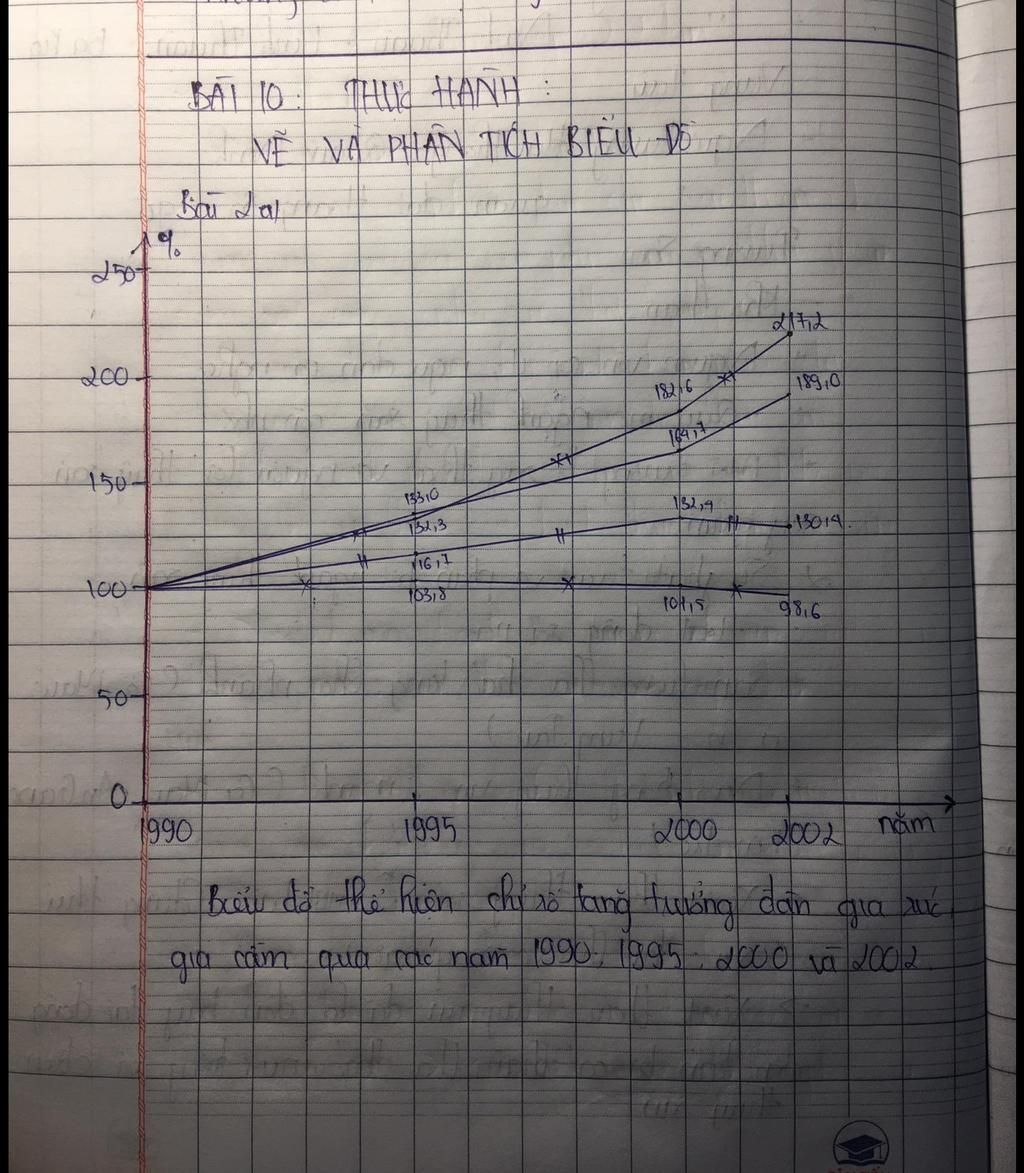 BÀI 10: THỰC HÀNH:
VẼ VÀ PHÂN TÍCH BIỂU ĐỒ.
Bài 2a)
%
250
217,2
200
189,0
182,6
164,7
150
133,0
132,3
132,4
130,4
116,7
100
103,8
101,5
98,6
50
0
1990 1995 2000 2002 năm
Biểu đồ thể hiện chỉ số tăng trưởng đàn gia súc
gia cầm qua các năm 1990, 1995, 2000 và 2002.